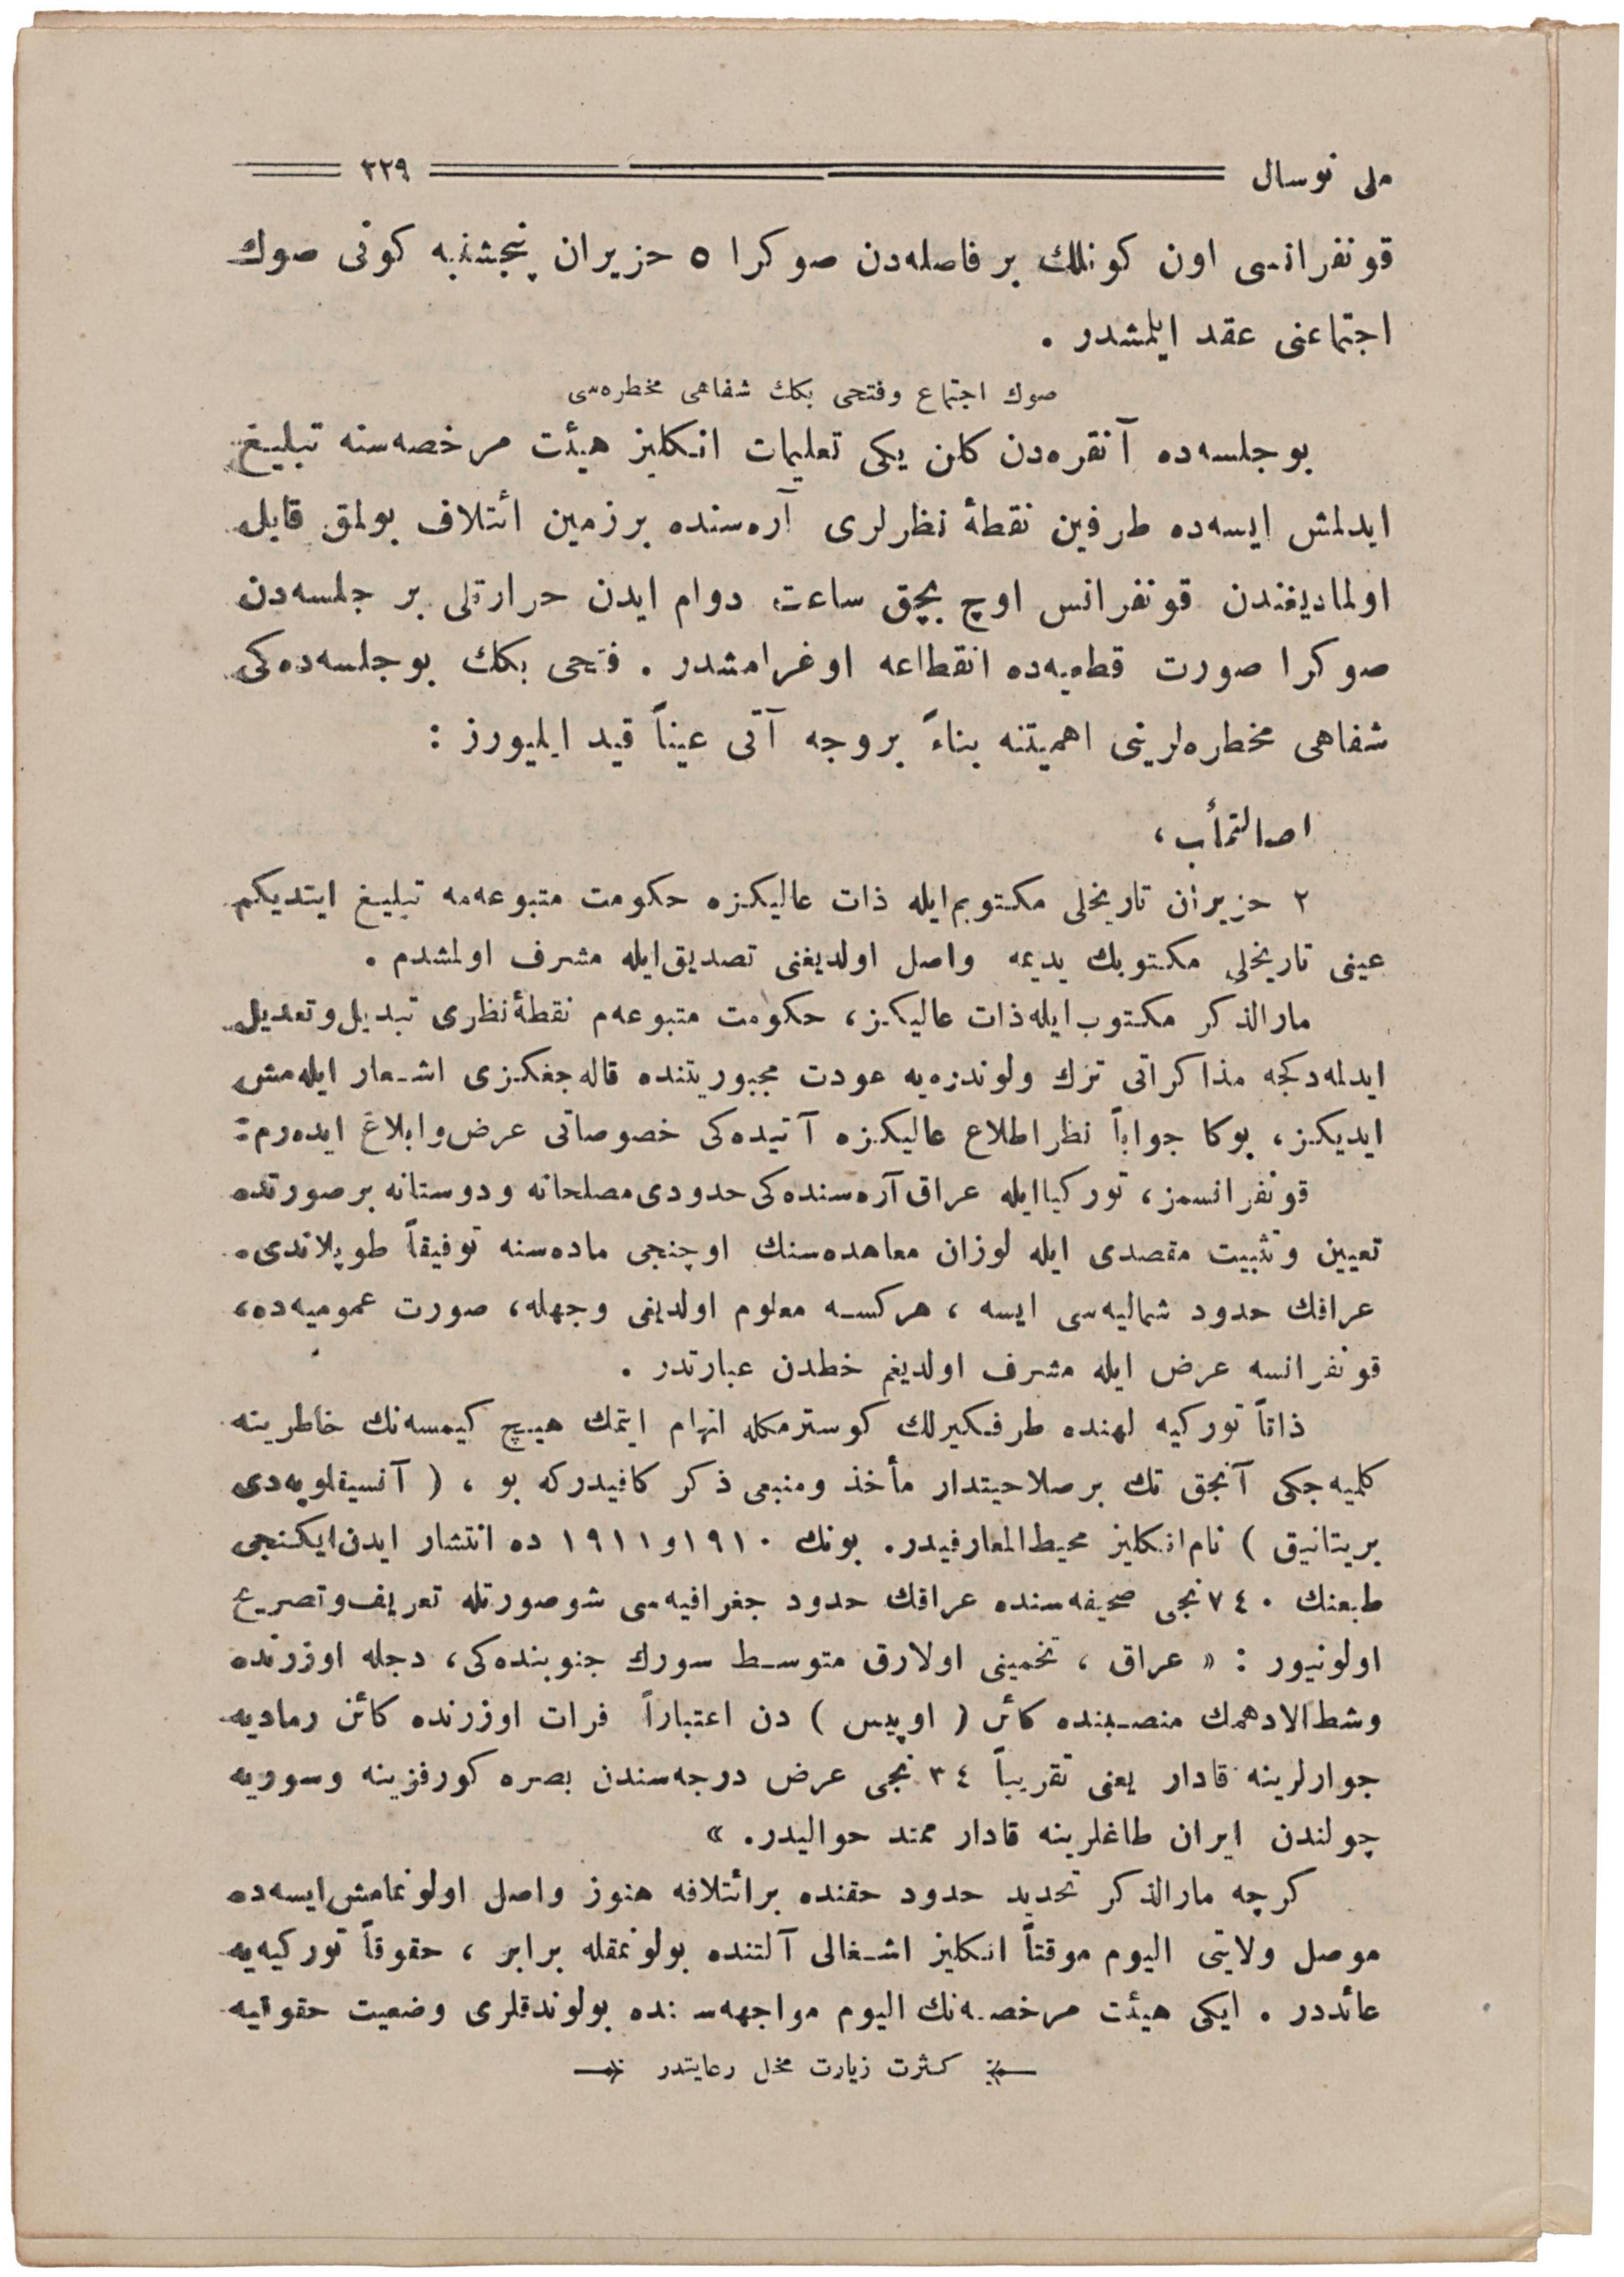 ملی نوسال ٣٢٩
قونفرانسی اون كونلك بر فاصله‌دن صوكرا ٥ حزیران پنجشنبه كونی صوك
اجتماعنی عقد ایلمشدر .
صوك اجتماع وفتحی بكك شفاهی مخطره‌سی
بو جلسه‌ده آنقره‌دن كلن یكی تعلیمات انكلیز هیئت مرخصه‌سنه تبلیغ
ایدلمش ایسه‌ده طرفین نقطهٔ نظرلری آره‌سنده بر زمین ائتلاف بولمق قابل
اولمادیغندن قونفرانس اوچ بچق ساعت دوام ایدن حرارتلی بر جلسه‌دن
صوكرا صورت قطعیه‌ده انقطاعه اوغرامشدر . فتحی بكك بو جلسه‌ده‌كی
شفاهی مخطره‌لرینی اهمیتنه بناءً بروجه آتی عیناً قید ایلیورز :
اصالتمأب ،
٢ حزیران تاریخلی مكتوبم‌ایله ذات عالیكزه حكومت متبوعه‌مه تبلیغ ایتدیكم
عینی تاریخلی مكتوبك یدیمه واصل اولدیغنی تصدیق‌ایله مشرف اولمشدم .
مارالذكر مكتوب‌ایله ذات عالیكز، حكومت متبوعه‌م نقطهٔ نظری تبدیل و تعدیل
ایدلمه‌دكجه مذاكراتی ترك ولوندره‌یه عودت مجبوریتنده قاله‌جغكزی اشعار ایله‌مش
ایدیكز ، بوكا جواباً نظر اطلاع عالیكزه آتیده‌كی خصوصاتی عرض وابلاغ ایده‌رم :
قونفرانسمز ، توركیاایله عراق آره‌سنده‌كی حدودی مصلحانه و دوستانه بر صورتده
تعیین و تثبیت مقصدی ایله لوزان معاهده‌سنك اوچنجی ماده‌سنه توفیقاً طوپلاندی .
عراقك حدود شمالیه‌سی ایسه ، هركسه معلوم اولدیغی وجهله، صورت عمومیه‌ده،
قونفرانسه عرض ایله مشرف اولدیغم خطدن عبارتدر .
ذاتاً توركیه لهنده طرفكیرلك كوسترمكله اتهام ایتمك هیچ كیمسه‌نك خاطرینه
كلمیه‌جكی آنجق تك بر صلاحیتدار مأخذ ومنبعی ذكر كافیدركه بو ، ( آنسیقلوپه‌دی
بریتانیق ) نام انكلیز محیط‌المعارفیدر . بونك ١٩١٠ و ١٩١١ ده انتشار ایدن ایكنجی
طبعنك ٧٤٠ نجی صحیفه‌سنده عراقك حدود جغرافیه‌سی شو صورتله تعریف و تصریح
اولونیور : « عراق ، تخمینی اولارق متوسط سورك جنوبنده‌كی ، دجله اوزرنده
وشط‌الادهمك منصبنده كائن ( اوپیس ) دن اعتباراً فرات اوزرنده كائن رمادیه
جوارلرینه قادار یعنی تقریباً ٣٤ نجی عرض درجه‌سندن بصره كورفزینه وسوریه
چولندن ایران طاغلرینه قادار ممتد حوالیدر . »
كرچه مارالذكر تحدید حدود حقنده بر ائتلافه هنوز واصل اولونمامش ایسه‌ده
موصل ولایتی الیوم موقتاً انكلیز اشغالی آلتنده بولونمقله برابر ، حقوقاً توركیه‌یه
عائددر . ایكی هیئت مرخصه‌نك الیوم مواجهه‌سنده بولوندقلری وضعیت حقوقیه
كثرت زیارت مخل رعایتدر